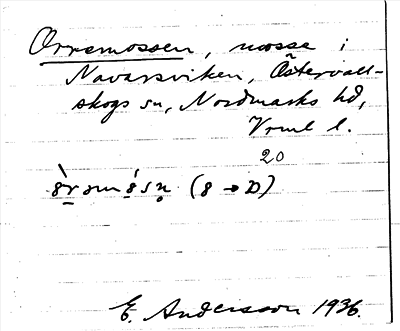 Orremossen, mosse i
Navarsviken, Östervall-
skogs sn, Nordmarks hd,
Vrml l.
20
(8 → D)
E. Andersson 1936.